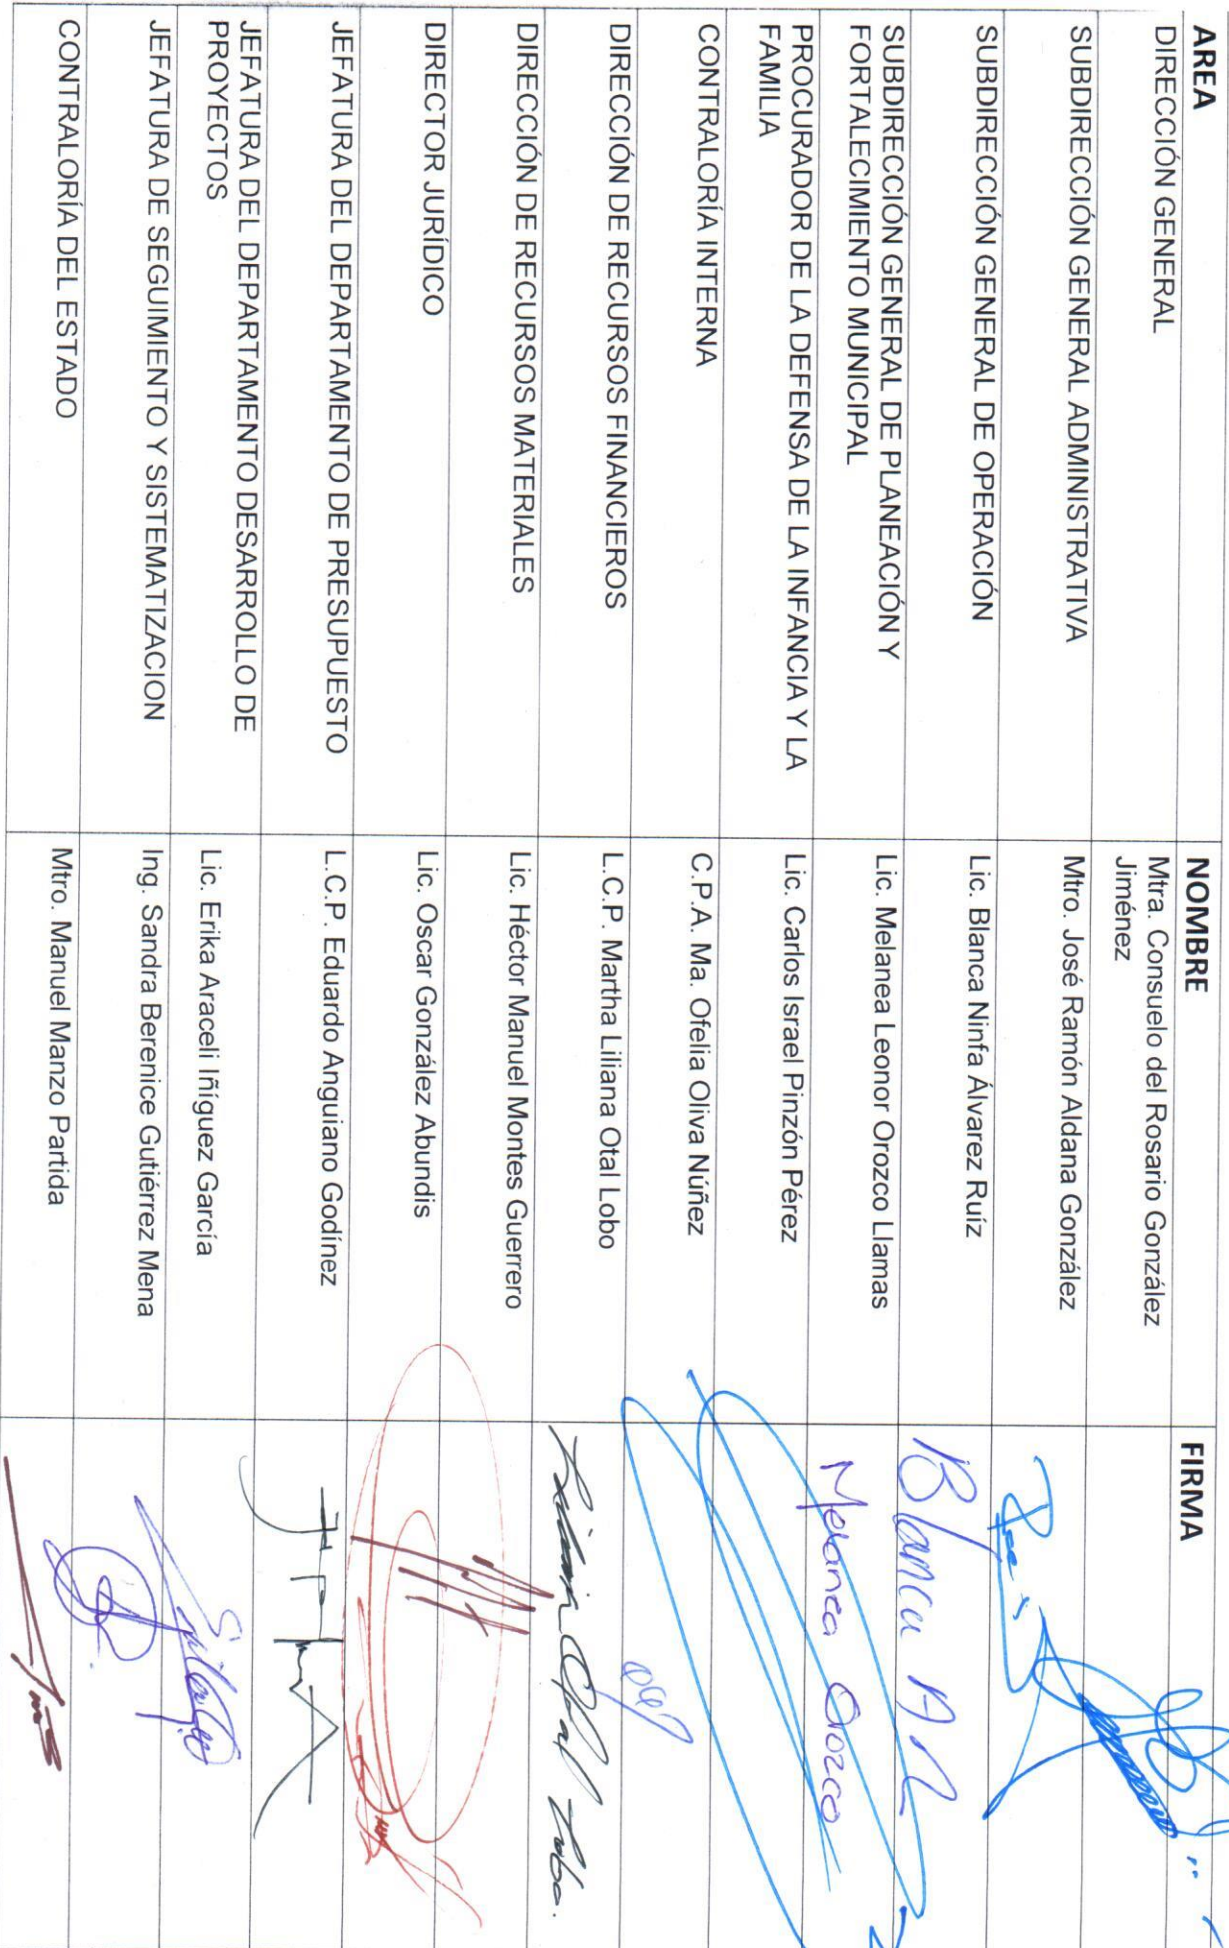 AREA NOMBRE FIRMA
DIRECCIÓN GENERAL Mtra. Consuelo del Rosario González
Jiménez
SUBDIRECCIÓN GENERAL ADMINISTRATIVA Mtro. José Ramón Aldana González
SUBDIRECCIÓN GENERAL DE OPERACIÓN Lic. Blanca Ninfa Álvarez Ruíz Blanca
SUBDIRECCIÓN GENERAL DE PLANEACIÓN Y
FORTALECIMIENTO MUNICIPAL Lic. Melanea Leonor Orozco Llamas Melanea Orozco
PROCURADOR DE LA DEFENSA DE LA INFANCIA Y LA
FAMILIA Lic. Carlos Israel Pinzón Pérez
CONTRALORÍA INTERNA C.P.A. Ma. Ofelia Oliva Núñez
DIRECCIÓN DE RECURSOS FINANCIEROS L.C.P. Martha Liliana Otal Lobo Liliana Otal Lobo.
DIRECCIÓN DE RECURSOS MATERIALES Lic. Héctor Manuel Montes Guerrero
DIRECTOR JURÍDICO Lic. Oscar González Abundis
JEFATURA DEL DEPARTAMENTO DE PRESUPUESTO L.C.P. Eduardo Anguiano Godínez
JEFATURA DEL DEPARTAMENTO DESARROLLO DE
PROYECTOS Lic. Erika Araceli Iñíguez García
JEFATURA DE SEGUIMIENTO Y SISTEMATIZACION Ing. Sandra Berenice Gutiérrez Mena
CONTRALORÍA DEL ESTADO Mtro. Manuel Manzo Partida